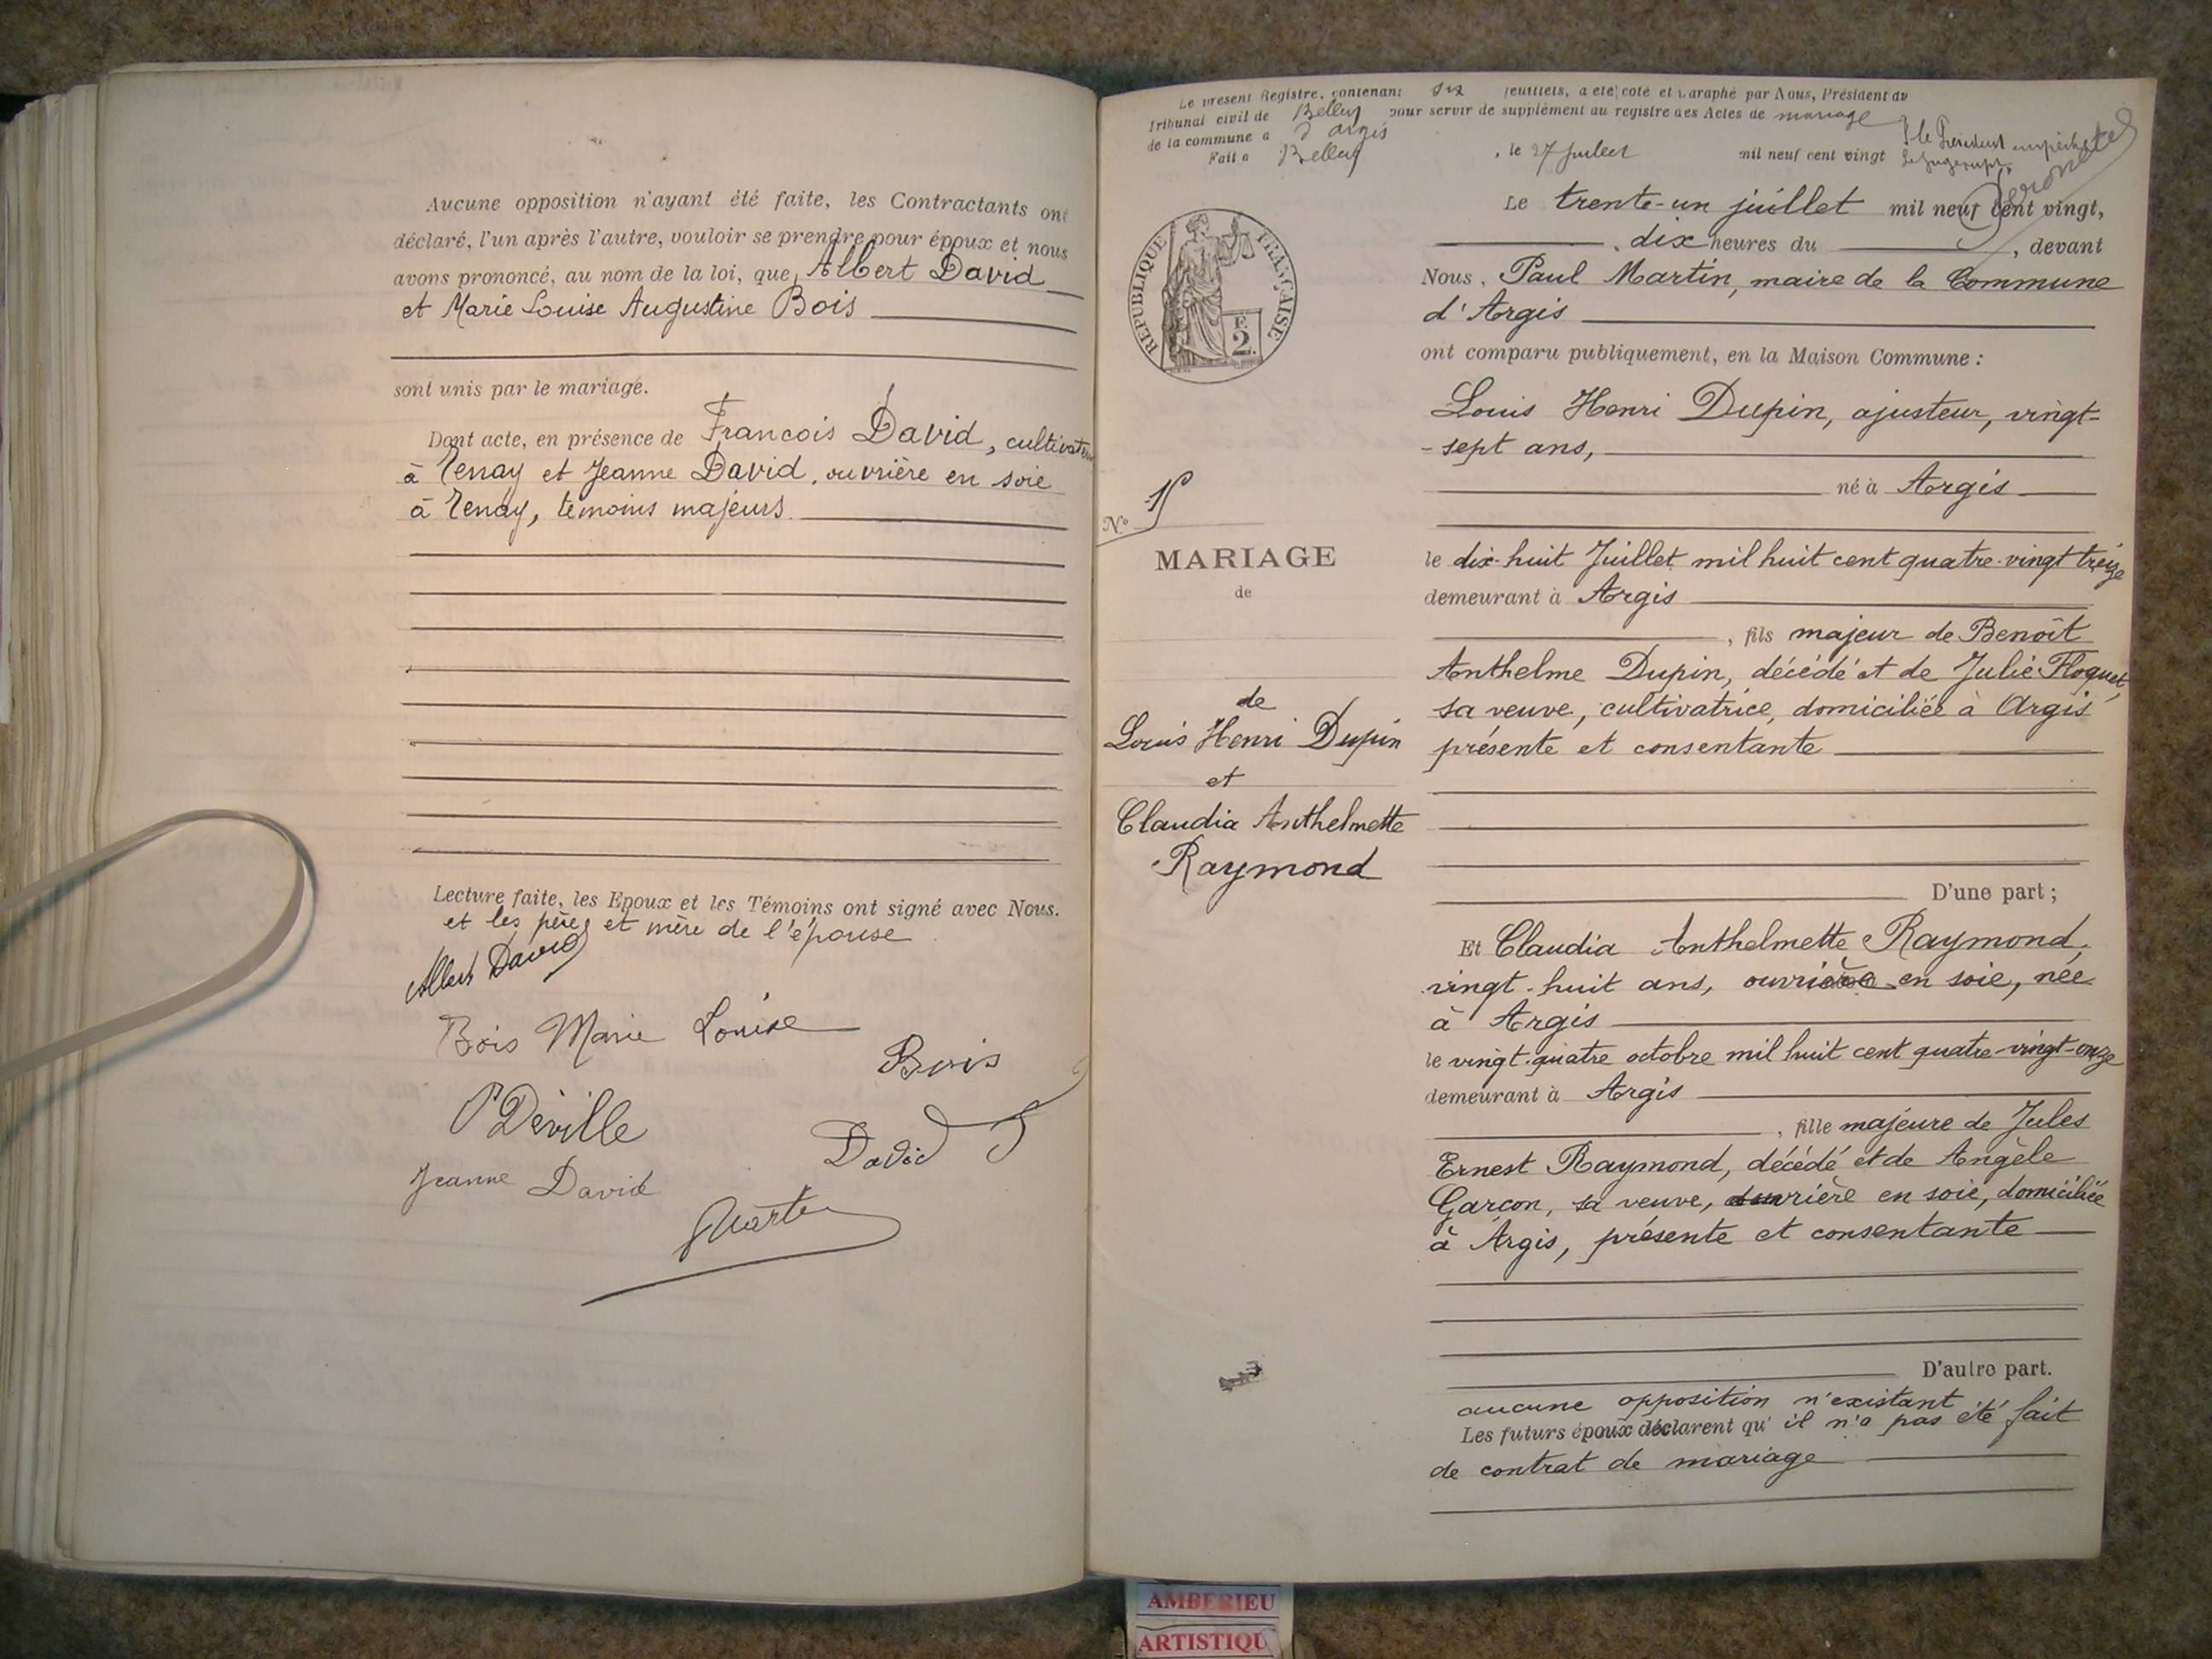 Aucune opposition n'ayant été faite, les Contractants ont
déclaré, l'un après l'autre, vouloir se prendre pour époux et nous
avons prononcé, au nom de la loi, que Albert David
et Marie Louise Augustine Bois
sont unis par le mariage.
Dont acte, en présence de François David, cultivateur
à Tenay et Jeanne David, ouvrière en soie
à Tenay, témoins majeurs.
Lecture faite, les Epoux et les Témoins ont signé avec Nous.
et les père et mère de l'épouse
Albert David
Bois Marie Louise
Bois
P Déville
David
Jeanne David
Martin
Le présent Registre, contenant six feuillets, a été coté et paraphé par Nous, Président du
Tribunal civil de Belley pour servir de supplément au registre des Actes de mariage
de la commune d'Argis
Fait à Belley, le 27 Juillet mil neuf cent vingt
le Président empêché
RÉPUBLIQUE FRANÇAISE
E
2.
Le trente-un juillet mil neuf cent vingt,
, dix heures du , devant
Nous, Paul Martin, maire de la Commune
d'Argis
ont comparu publiquement, en la Maison Commune :
Louis Henri Dupin, ajusteur, vingt-
-sept ans,
né à Argis
le dix-huit Juillet mil huit cent quatre-vingt treize
demeurant à Argis
, fils majeur de Benoît
Anthelme Dupin, décédé et de Julie Floquet,
sa veuve, cultivatrice, domiciliée à Argis
présente et consentante
D'une part ;
N°
MARIAGE
de
de
Louis Henri Dupin
et
Claudia Anthelmette
Raymond
Et Claudia Anthelmette Raymond,
vingt-huit ans, ouvrière en soie, née
à Argis
le vingt-quatre octobre mil huit cent quatre-vingt-onze
demeurant à Argis
, fille majeure de Jules
Ernest Raymond, décédé et de Angèle
Garçon, sa veuve, ouvrière en soie, domiciliée
à Argis, présente et consentante
D'autre part.
aucune opposition n'existant
Les futurs époux déclarent qu'il n'a pas été fait
de contrat de mariage
AMBERIEU
ARTISTIQU